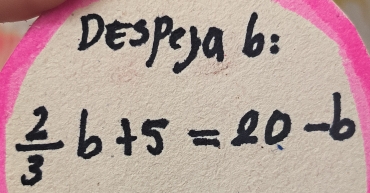 Despeja b:
2/3 b + 5 = 20 - b